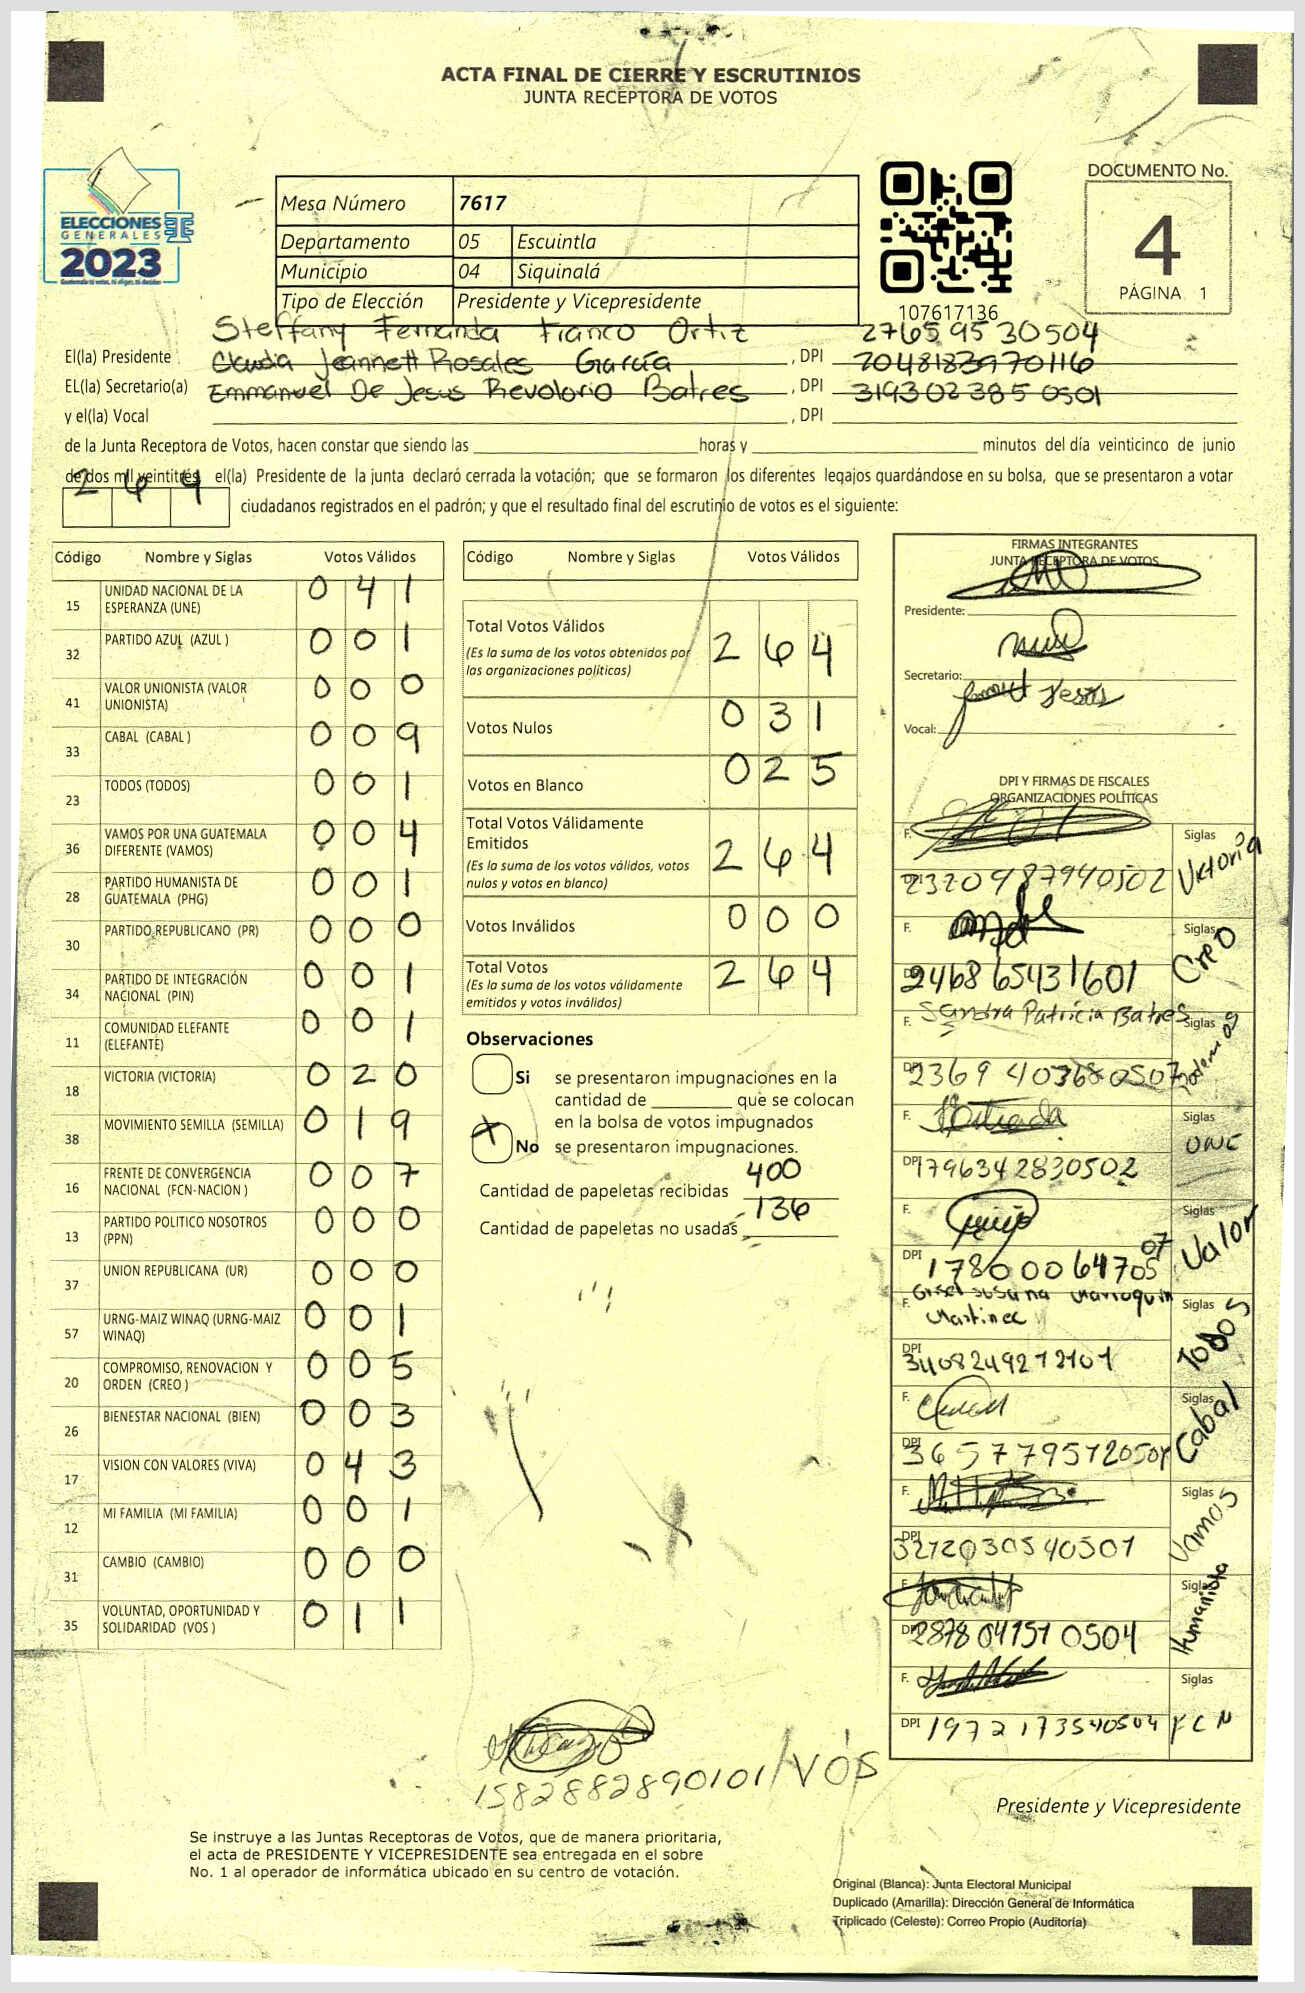 ACTA FINAL DE CIERRE Y ESCRUTINIOS
JUNTA RECEPTORA DE VOTOS
ELECCIONES
GENERALES
2023
Mesa Número 7617
Departamento 05 Escuintla
Municipio 04 Siquinalá
Tipo de Elección Presidente y Vicepresidente
107617136
DOCUMENTO No.
4
PÁGINA 1
Steffany Fernanda Franco Ortiz 2765 95 30504
El(la) Presidente Claudia Jeannett Rosales García , DPI 2048183970116
EL(la) Secretario(a) Emmanuel De Jesus Revolorio Batres , DPI 319302385 0501
y el(la) Vocal , DPI
de la Junta Receptora de Votos, hacen constar que siendo las horas y minutos del día veinticinco de junio
de dos mil veintitrés, el(la) Presidente de la junta declaró cerrada la votación; que se formaron los diferentes legajos guardándose en su bolsa, que se presentaron a votar
2 6 4 ciudadanos registrados en el padrón; y que el resultado final del escrutinio de votos es el siguiente:
Código Nombre y Siglas Votos Válidos
15 UNIDAD NACIONAL DE LA ESPERANZA (UNE) 0 4 1
32 PARTIDO AZUL (AZUL ) 0 0 1
41 VALOR UNIONISTA (VALOR UNIONISTA) 0 0 0
33 CABAL (CABAL ) 0 0 9
23 TODOS (TODOS) 0 0 1
36 VAMOS POR UNA GUATEMALA DIFERENTE (VAMOS) 0 0 4
28 PARTIDO HUMANISTA DE GUATEMALA (PHG) 0 0 1
30 PARTIDO REPUBLICANO (PR) 0 0 0
34 PARTIDO DE INTEGRACIÓN NACIONAL (PIN) 0 0 1
11 COMUNIDAD ELEFANTE (ELEFANTE) 0 0 1
18 VICTORIA (VICTORIA) 0 2 0
38 MOVIMIENTO SEMILLA (SEMILLA) 0 1 9
16 FRENTE DE CONVERGENCIA NACIONAL (FCN-NACION ) 0 0 7
13 PARTIDO POLITICO NOSOTROS (PPN) 0 0 0
37 UNION REPUBLICANA (UR) 0 0 0
57 URNG-MAIZ WINAQ (URNG-MAIZ WINAQ) 0 0 1
20 COMPROMISO, RENOVACION Y ORDEN (CREO ) 0 0 5
26 BIENESTAR NACIONAL (BIEN) 0 0 3
17 VISION CON VALORES (VIVA) 0 4 3
12 MI FAMILIA (MI FAMILIA) 0 0 1
31 CAMBIO (CAMBIO) 0 0 0
35 VOLUNTAD, OPORTUNIDAD Y SOLIDARIDAD (VOS ) 0 1 1
Código Nombre y Siglas Votos Válidos
Total Votos Válidos 2 6 4
(Es la suma de los votos obtenidos por
las organizaciones políticas)
Votos Nulos 0 3 1
Votos en Blanco 0 2 5
Total Votos Válidamente
Emitidos 2 6 4
(Es la suma de los votos válidos, votos
nulos y votos en blanco)
Votos Inválidos 0 0 0
Total Votos 2 6 4
(Es la suma de los votos válidamente
emitidos y votos inválidos)
Observaciones
Si se presentaron impugnaciones en la
cantidad de que se colocan
en la bolsa de votos impugnados
X No se presentaron impugnaciones.
Cantidad de papeletas recibidas 400
Cantidad de papeletas no usadas 136
FIRMAS INTEGRANTES
JUNTA RECEPTORA DE VOTOS
Presidente:
Secretario:
Vocal:
DPI Y FIRMAS DE FISCALES
ORGANIZACIONES POLÍTICAS
F. Siglas Victoria
DPI 2320987940502
F. Siglas Creo
DPI 2468 65431601
F. Sandra Patricia Batres Siglas Podemos
DPI 2369 403680507
F. Estrada Siglas UNE
DPI 1796342830502
F. Siglas Valor
DPI 17800064705 07
F. Gisel Susana Marroquin Siglas Todos
Martinez
DPI 3408249212101
F. Siglas Cabal
DPI 3657795120504
F. Siglas Vamos
DPI 3212030540501
F. Siglas Humanista
DPI 2878041510504
F. Siglas FCN
DPI 1972173540504
1582882890101/VOS
Presidente y Vicepresidente
Se instruye a las Juntas Receptoras de Votos, que de manera prioritaria,
el acta de PRESIDENTE Y VICEPRESIDENTE sea entregada en el sobre
No. 1 al operador de informática ubicado en su centro de votación.
Original (Blanca): Junta Electoral Municipal
Duplicado (Amarilla): Dirección General de Informática
Triplicado (Celeste): Correo Propio (Auditoría)